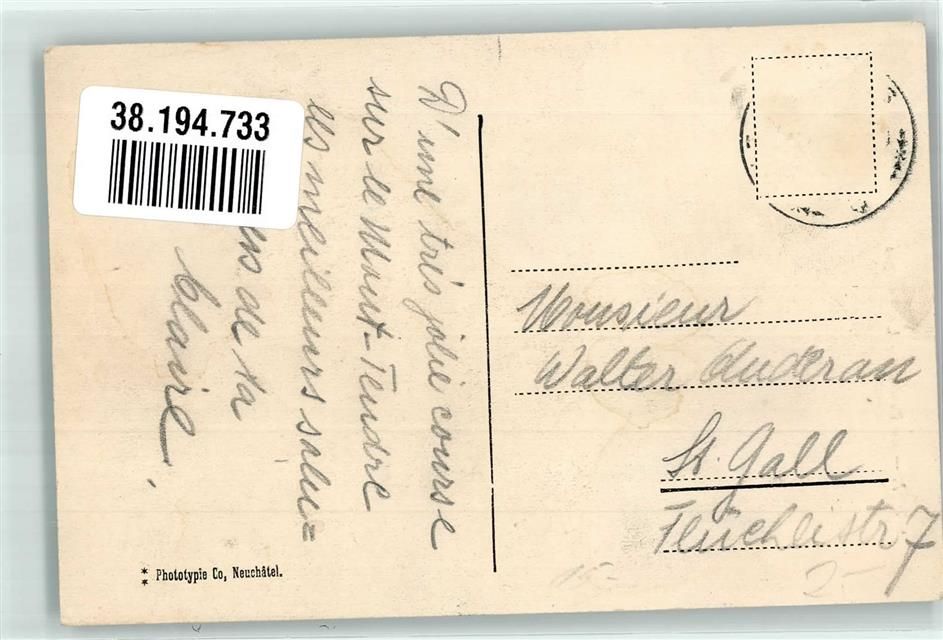 38.194.733
D'une très jolie course
sur le Mont-Tendre
les meilleurs salu=
de ta
Claire.
Monsieur
Walter Anderau
St. Gall
7
Phototypie Co, Neuchâtel.